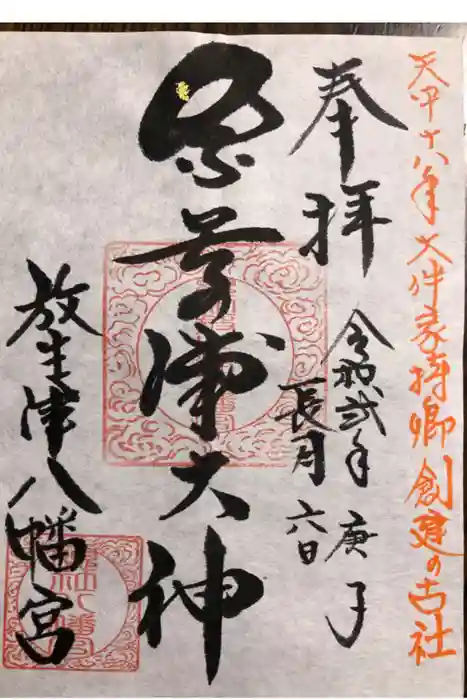 天平十八年 大伴家持卿 創建の古社
奉拝
令和弐年 庚子
長月 六日
奈呉浦大神
放生津八幡宮